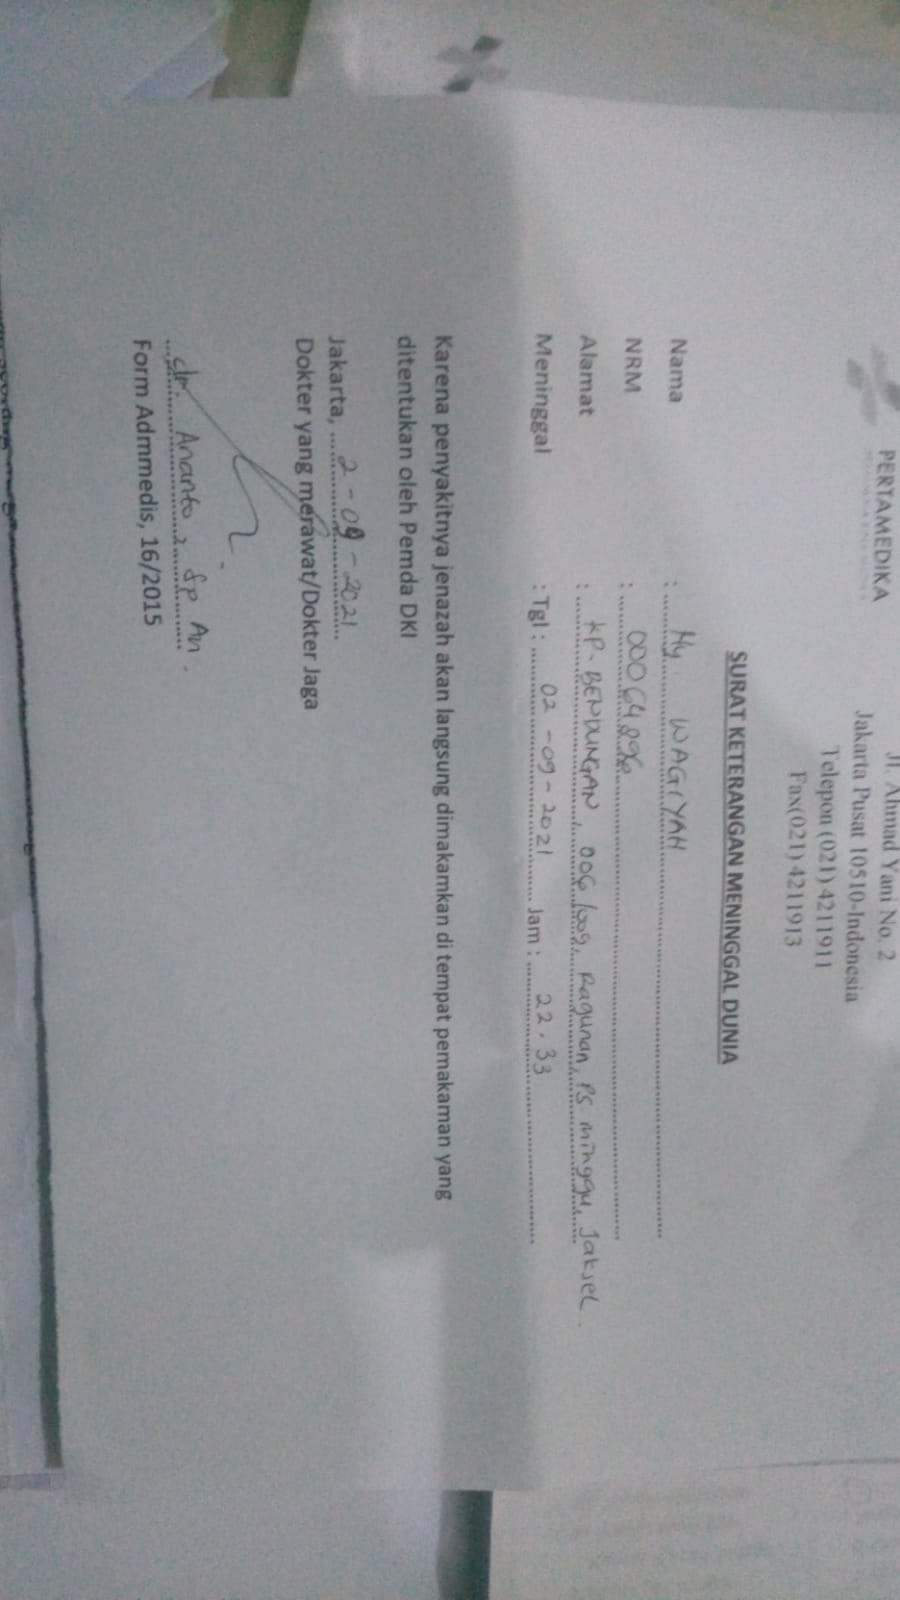 PERTAMEDIKA
Jl. Ahmad Yani No. 2
Jakarta Pusat 10510-Indonesia
Telepon (021) 4211911
Fax(021) 4211913
SURAT KETERANGAN MENINGGAL DUNIA
Nama : Ny. WAGIYAH
NRM : 00064896
Alamat : KP. BENDUNGAN, 006/009, Ragunan, Ps minggu, Jaksel.
Meninggal : Tgl : 02 - 09 - 2021 Jam : 22.33
Karena penyakitnya jenazah akan langsung dimakamkan di tempat pemakaman yang
ditentukan oleh Pemda DKI
Jakarta, 2 - 09 - 2021
Dokter yang merawat/Dokter Jaga
dr. Ananto, Sp An.
Form Admmedis, 16/2015